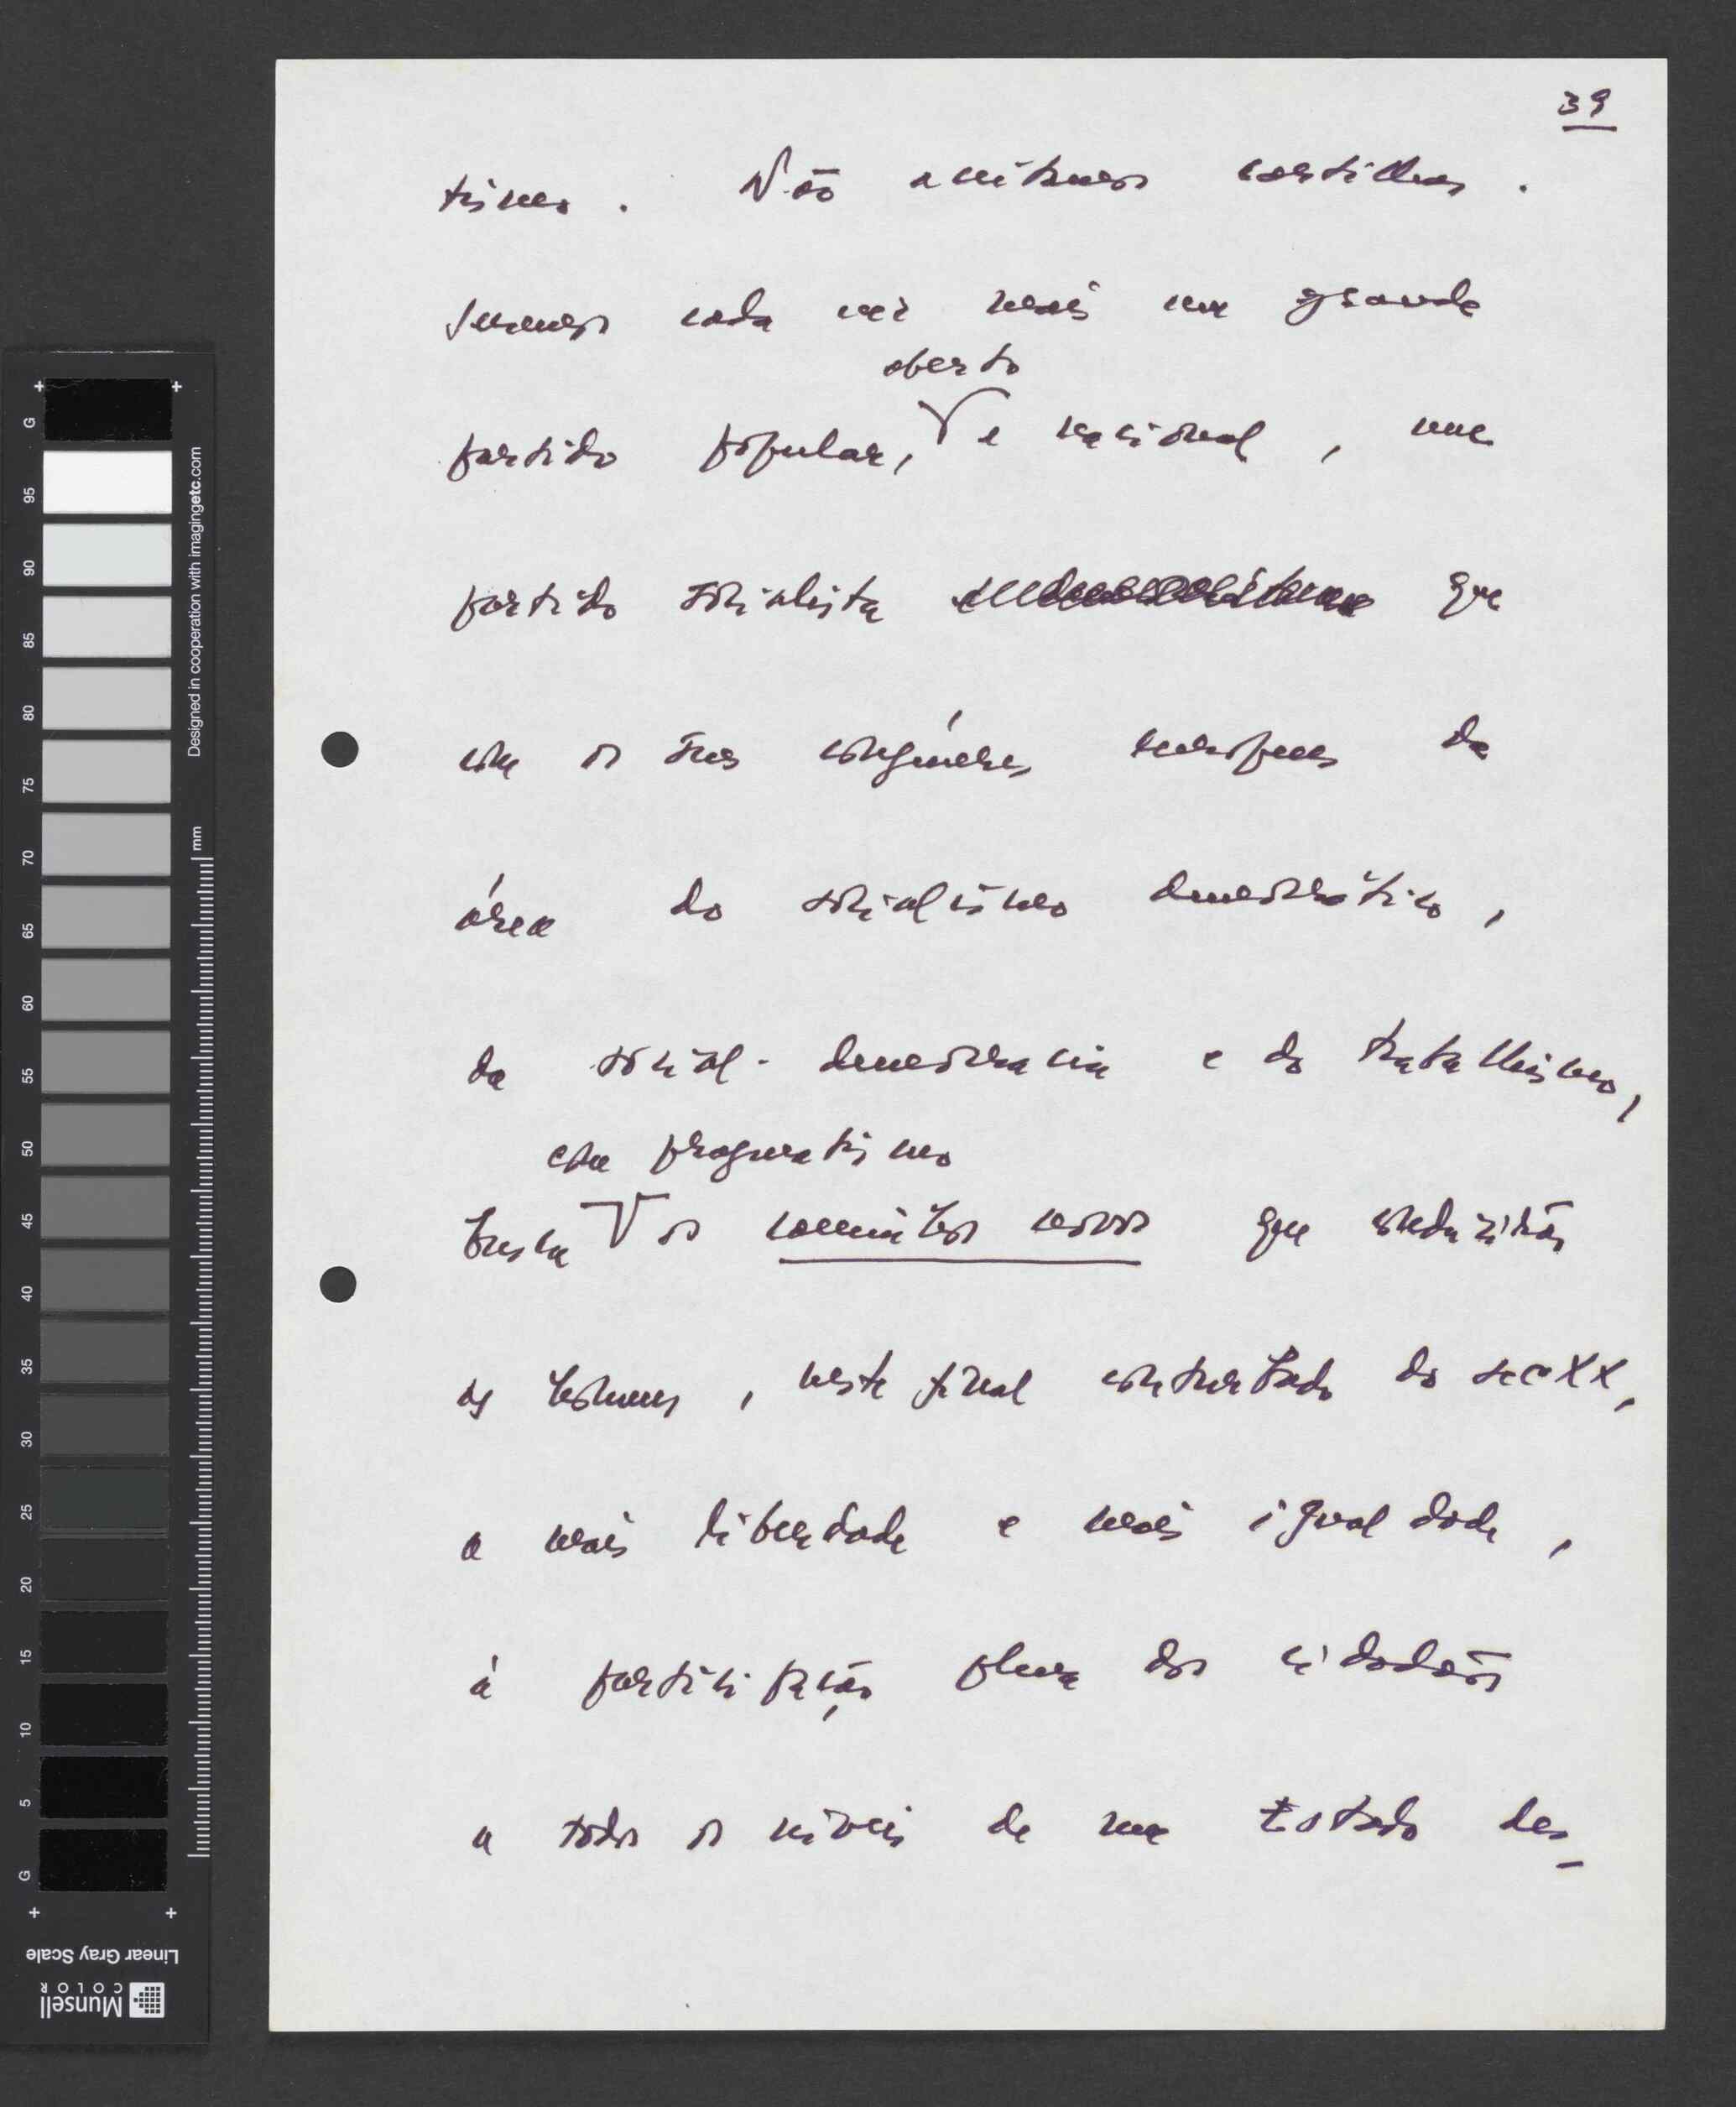 39
tismo. Não aceitamos cartilhas.
Seremos cada vez mais um grande
aberto
partido popular, e nacional, um
partido socialista que
com os seus congéneres europeus da
área do socialismo democrático,
da social-democracia e do trabalhismo,
com pragmatismo
busca os caminhos novos que conduzirão
os homens, neste final conturbado do sec XX,
a mais liberdade e mais igualdade,
à participação plena dos cidadãos
a todos os níveis de um Estado des-
G
95
90
85
80
75
70
65
60
55
50
45
40
35
30
25
20
15
10
5
G
mm
Designed in cooperation with imagingetc.com
Linear Gray Scale
Munsell
COLOR